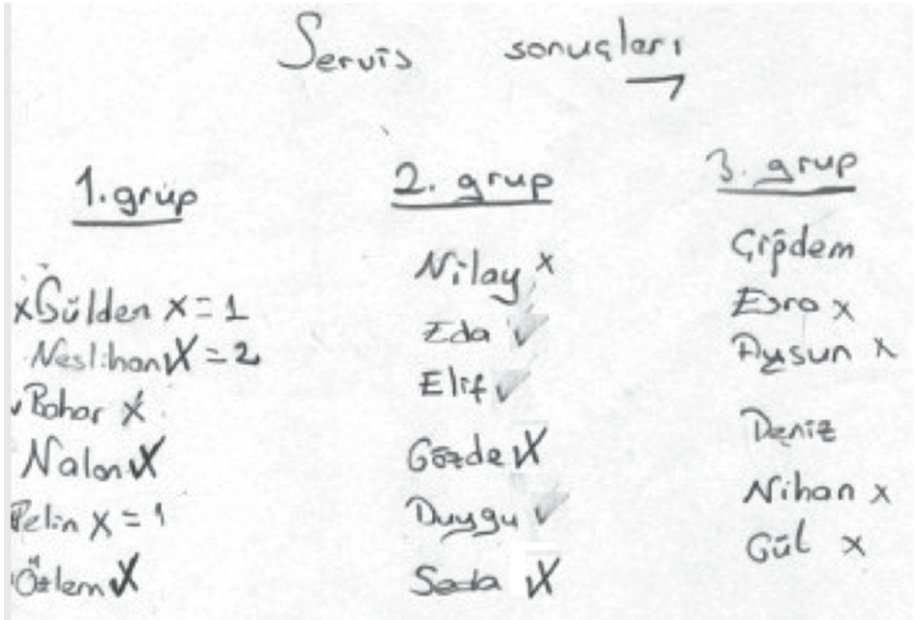 Servis sonuçları
1. grup
x Gülden x = 1
Neslihan ✓x = 2
✓ Bahar x
Nalan ✓x
Pelin x = 1
Özlem ✓x
2. grup
Nilay x
Eda ✓
Elif ✓
Gözde ✓x
Duygu ✓
Seda ✓x
3. grup
Çiğdem
Esra x
Aysun x
Deniz
Nihan x
Gül x